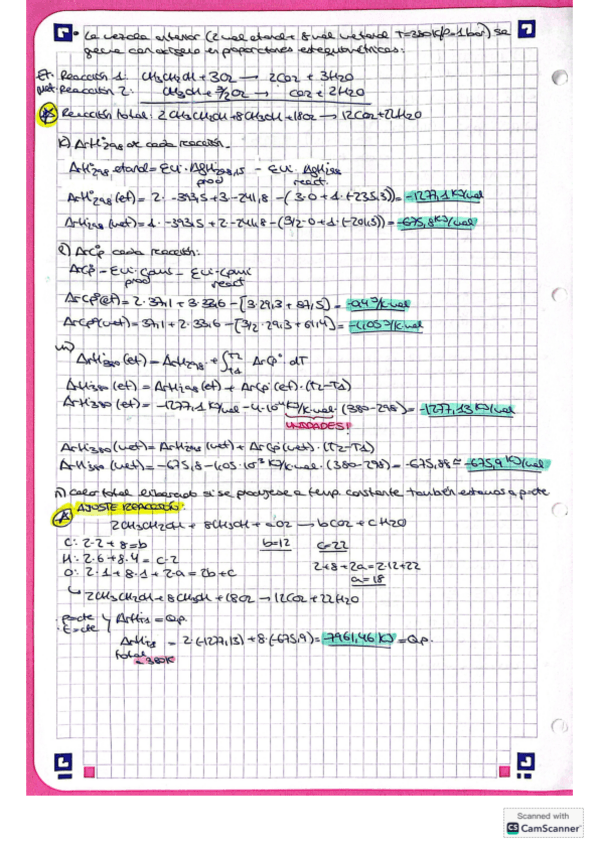 • La mezcla anterior (2 mol etanol + 8 mol metanol T=380K/P=1bar) se
quema con oxígeno en proporciones estequiométricas:
Et. Reacción 1: CH3CH2OH + 3O2 → 2CO2 + 3H2O
Met. Reacción 2: CH3OH + 3/2O2 → CO2 + 2H2O
Reacción total: 2CH3CH2OH + 8CH3OH + 18O2 → 12CO2 + 22H2O
k) ΔrH°298 de cada reacción.
ΔrH°298 etanol = Σνi·ΔfH298,15 - Σνi·ΔfH298
prod react.
ΔrH°298(et) = 2·-393,5 + 3·-241,8 - (3·0 + 1·(-235,3)) = -1277,1 KJ/mol
ΔrH298(met) = 1·-393,5 + 2·-241,8 - (3/2·0 + 1·(-201,5)) = -675,8 KJ/mol
l) ΔrCp cada reacción:
ΔrCp = Σνi·Cpmi - Σνi·Cpmi
prod react
ΔrCp°(et) = 2·37,1 + 3·33,6 - [3·29,3 + 87,5] = -0,4 J/K·mol
ΔrCp°(met) = 37,1 + 2·33,6 - [3/2·29,3 + 61,4] = -1,05 J/K·mol
m) ΔrH°380(et) = ΔrH°298 + ∫T1T2 ΔrCp° dT
ΔrH380(et) = ΔrH298(et) + ΔrCp(et)·(T2-T1)
ΔrH380(et) = -1277,1 KJ/mol - 4·10-4 KJ/K·mol·(380-298) = -1277,13 KJ/mol
UNIDADES!
ΔrH380(met) = ΔrH298(met) + ΔrCp(met)·(T2-T1)
ΔrH380(met) = -675,8 - 1,05·10-3 KJ/K·mol·(380-298) = -675,88 ≈ -675,9 KJ/mol
n) Calor total liberado si se produjese a temp. constante también estamos a p cte
AJUSTE REACCIÓN:
2CH3CH2OH + 8CH3OH + aO2 → bCO2 + cH2O
C: 2·2 + 8 = b b=12 c=22
H: 2·6 + 8·4 = c·2
O: 2·1 + 8·1 + 2·a = 2b + c 2+8+2a = 2·12+22
a=18
↳ 2CH3CH2OH + 8CH3OH + 18O2 → 12CO2 + 22H2O
· p=cte } ΔrHTS = Qp.
· T=cte
ΔrHTS = 2·(-1277,13) + 8·(-675,9) = -7961,46 KJ = Qp.
total
= 380K
Scanned with
CS CamScanner